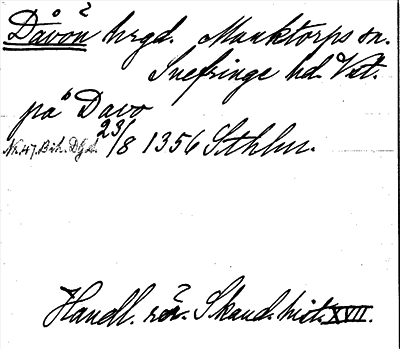 Dåvön? hrgd. Munktorps sn.
Snefringe hd. Vstm.
på Davø
23/8 1356 Sthlm.
Handl. rör. Skand. hist. XVII.